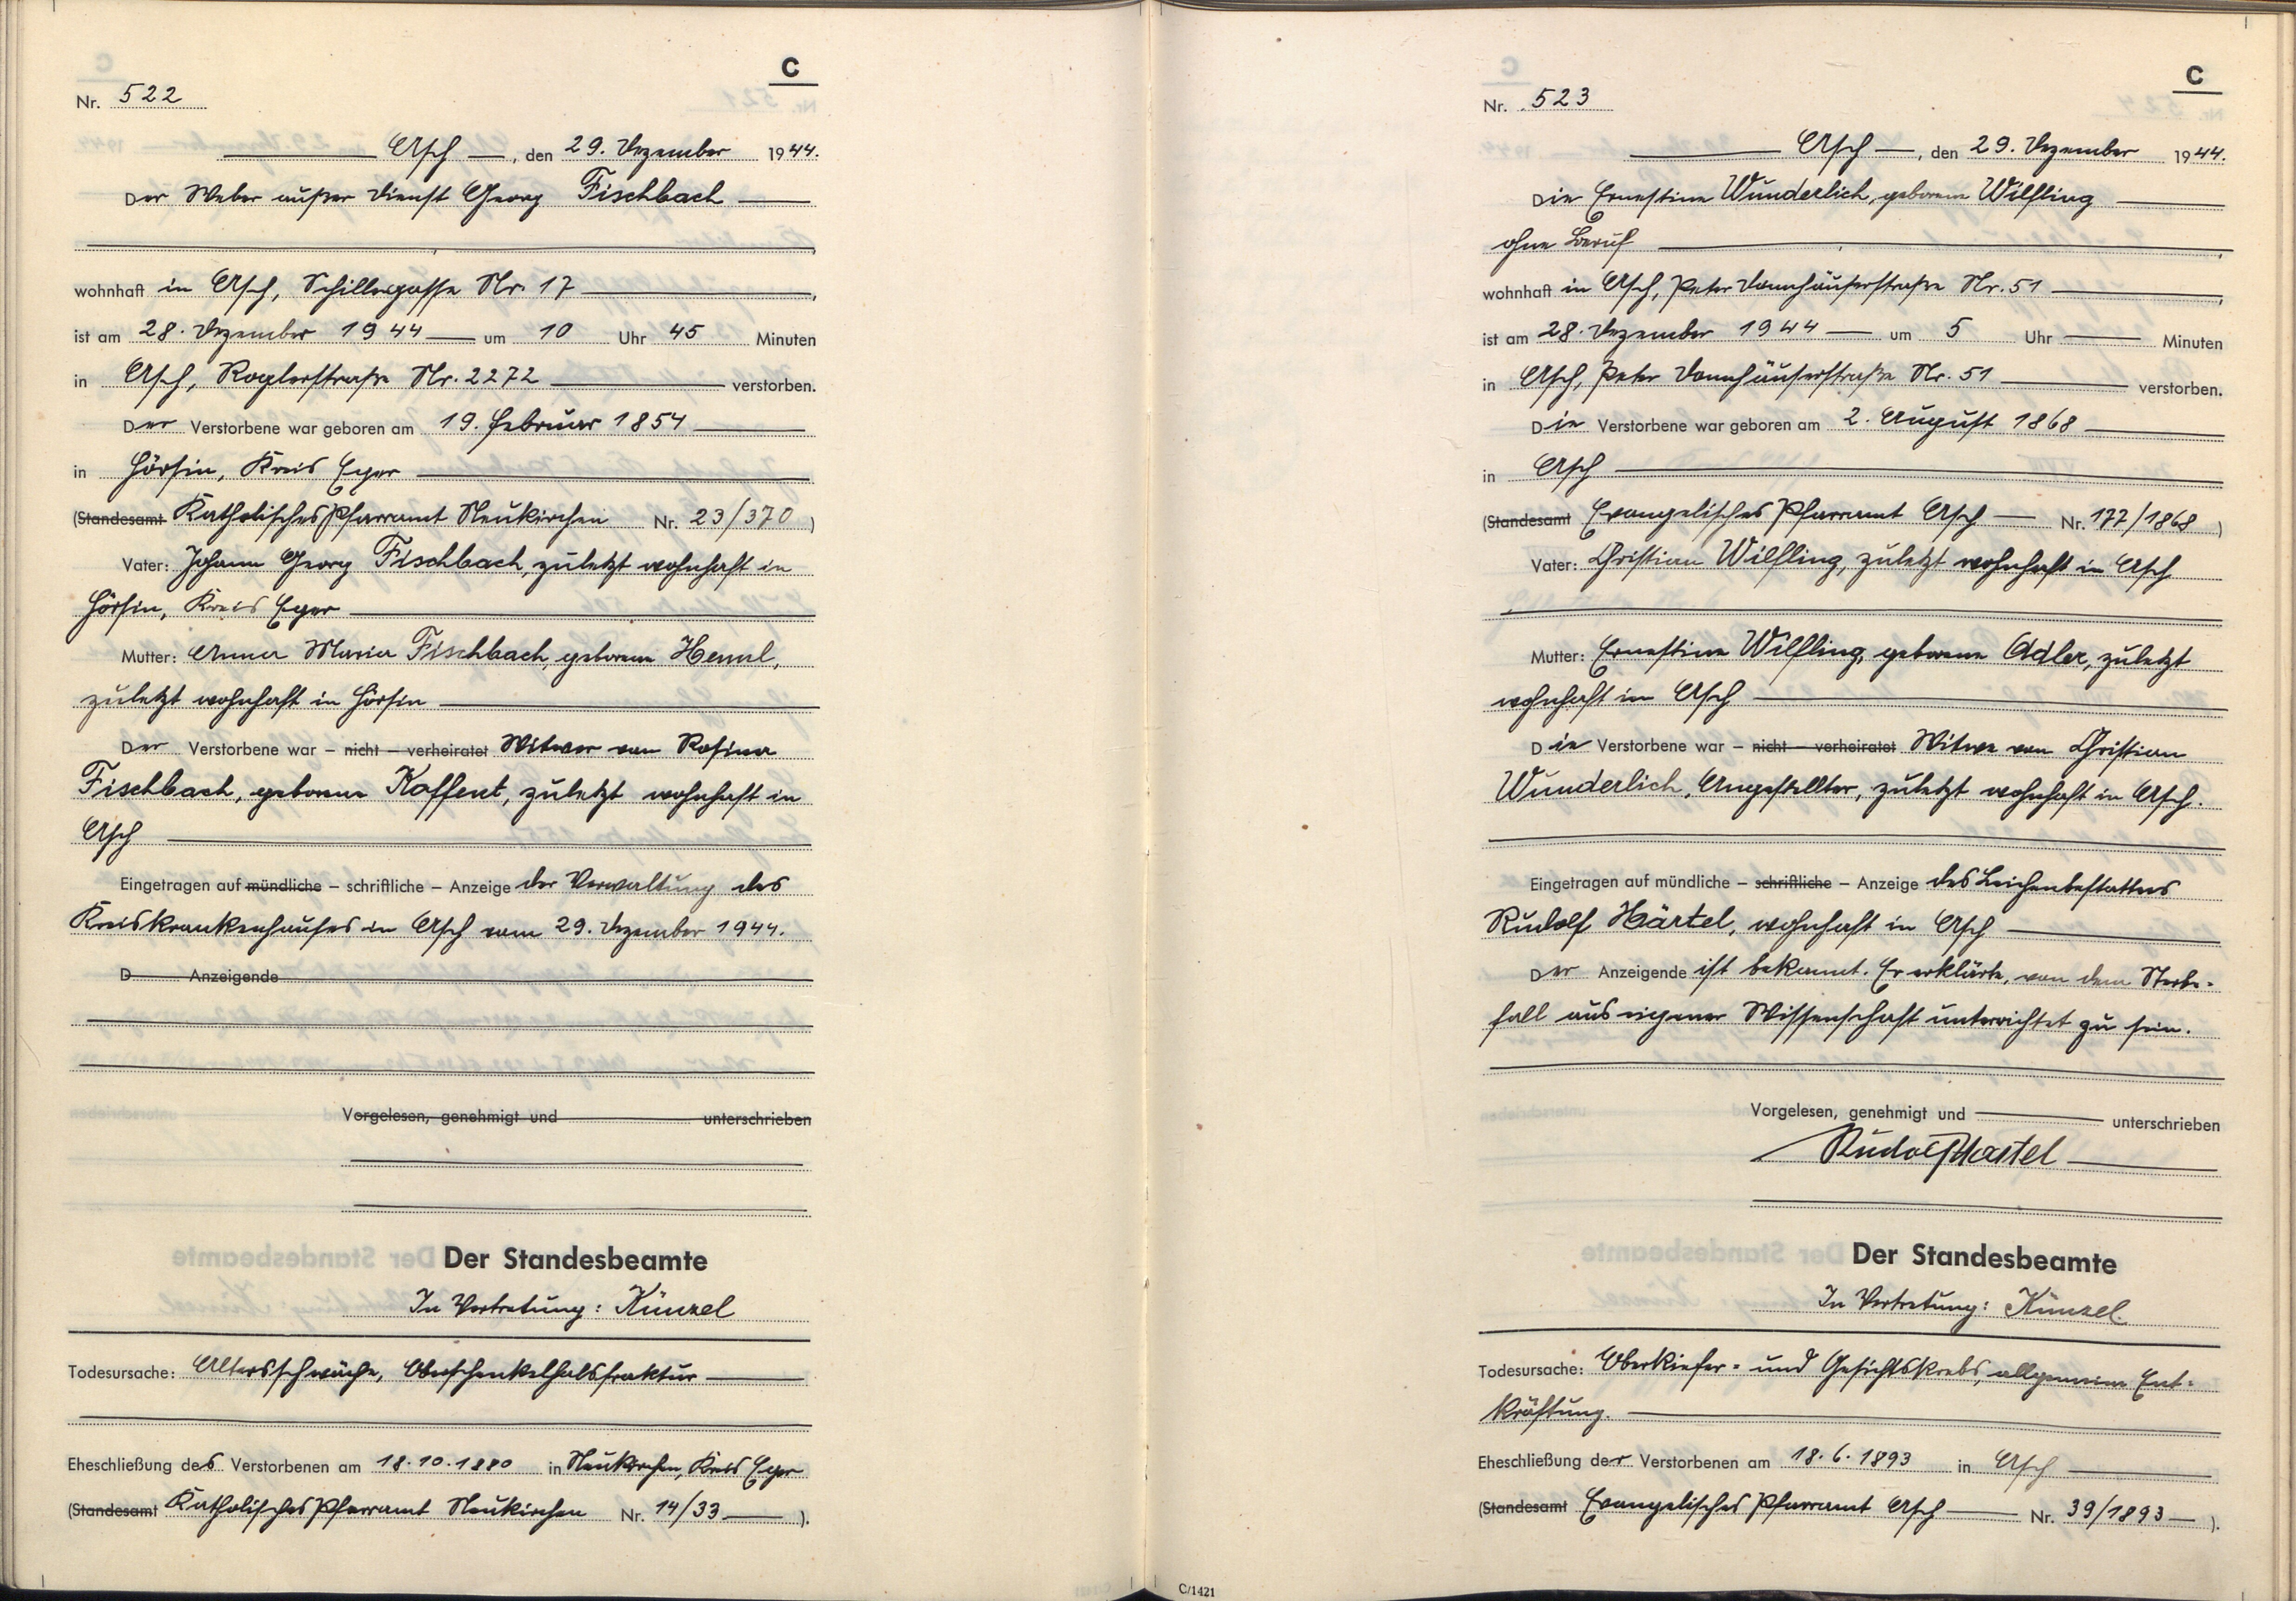 C
Nr. 522
Asch, den 29. Dezember 1944.
Der Weber außer Dienst Georg Fischbach
wohnhaft in Asch, Schillergasse Nr. 17
ist am 28. Dezember 1944 um 10 Uhr 45 Minuten
in Asch, Roglerstraße Nr. 2272 verstorben.
Der Verstorbene war geboren am 19. Februar 1854
in Hörsin, Kreis Eger
(Standesamt Katholisches Pfarramt Neukirchen Nr. 23/370)
Vater: Johann Georg Fischbach, zuletzt wohnhaft in
Hörsin, Kreis Eger
Mutter: Anna Maria Fischbach geborene Heml,
zuletzt wohnhaft in Hörsin
Der Verstorbene war – nicht – verheiratet Witwer von Rosina
Fischbach, geborene Kaffent, zuletzt wohnhaft in
Asch
Eingetragen auf mündliche – schriftliche – Anzeige der Verwaltung des
Kreiskrankenhauses in Asch vom 29. Dezember 1944.
D Anzeigende
Vorgelesen, genehmigt und unterschrieben
Der Standesbeamte
In Vertretung: Künzel
Todesursache: Altersschwäche, Oberschenkelhalsfraktur
Eheschließung des Verstorbenen am 18.10.1880 in Neukirchen, Kreis Eger
(Standesamt Katholisches Pfarramt Neukirchen Nr. 14/33).
C
Nr. 523
Asch, den 29. Dezember 1944.
Die Ernestine Wunderlich, geborene Wilfling
ohne Beruf
wohnhaft in Asch, Peter Donnhäuserstraße Nr. 51
ist am 28. Dezember 1944 um 5 Uhr Minuten
in Asch, Peter Donnhäuserstraße Nr. 51 verstorben.
Die Verstorbene war geboren am 2. August 1868
in Asch
(Standesamt Evangelisches Pfarramt Asch Nr. 177/1868)
Vater: Christian Wilfling, zuletzt wohnhaft in Asch
Mutter: Ernestine Wilfling, geborene Adler, zuletzt
wohnhaft in Asch
Die Verstorbene war – nicht – verheiratet Witwe von Christian
Wunderlich, Angestellter, zuletzt wohnhaft in Asch.
Eingetragen auf mündliche – schriftliche – Anzeige des Leichenbestatters
Rudolf Härtel, wohnhaft in Asch
Der Anzeigende ist bekannt. Er erklärte, von dem Sterbe-
fall aus eigener Wissenschaft unterrichtet zu sein.
Vorgelesen, genehmigt und unterschrieben
Rudolf Härtel
Der Standesbeamte
In Vertretung: Künzel.
Todesursache: Oberkiefer- und Gesichtskrebs, allgemeine Ent-
kräftung.
Eheschließung der Verstorbenen am 18.6.1893 in Asch
(Standesamt Evangelisches Pfarramt Asch Nr. 39/1893).
C/1421